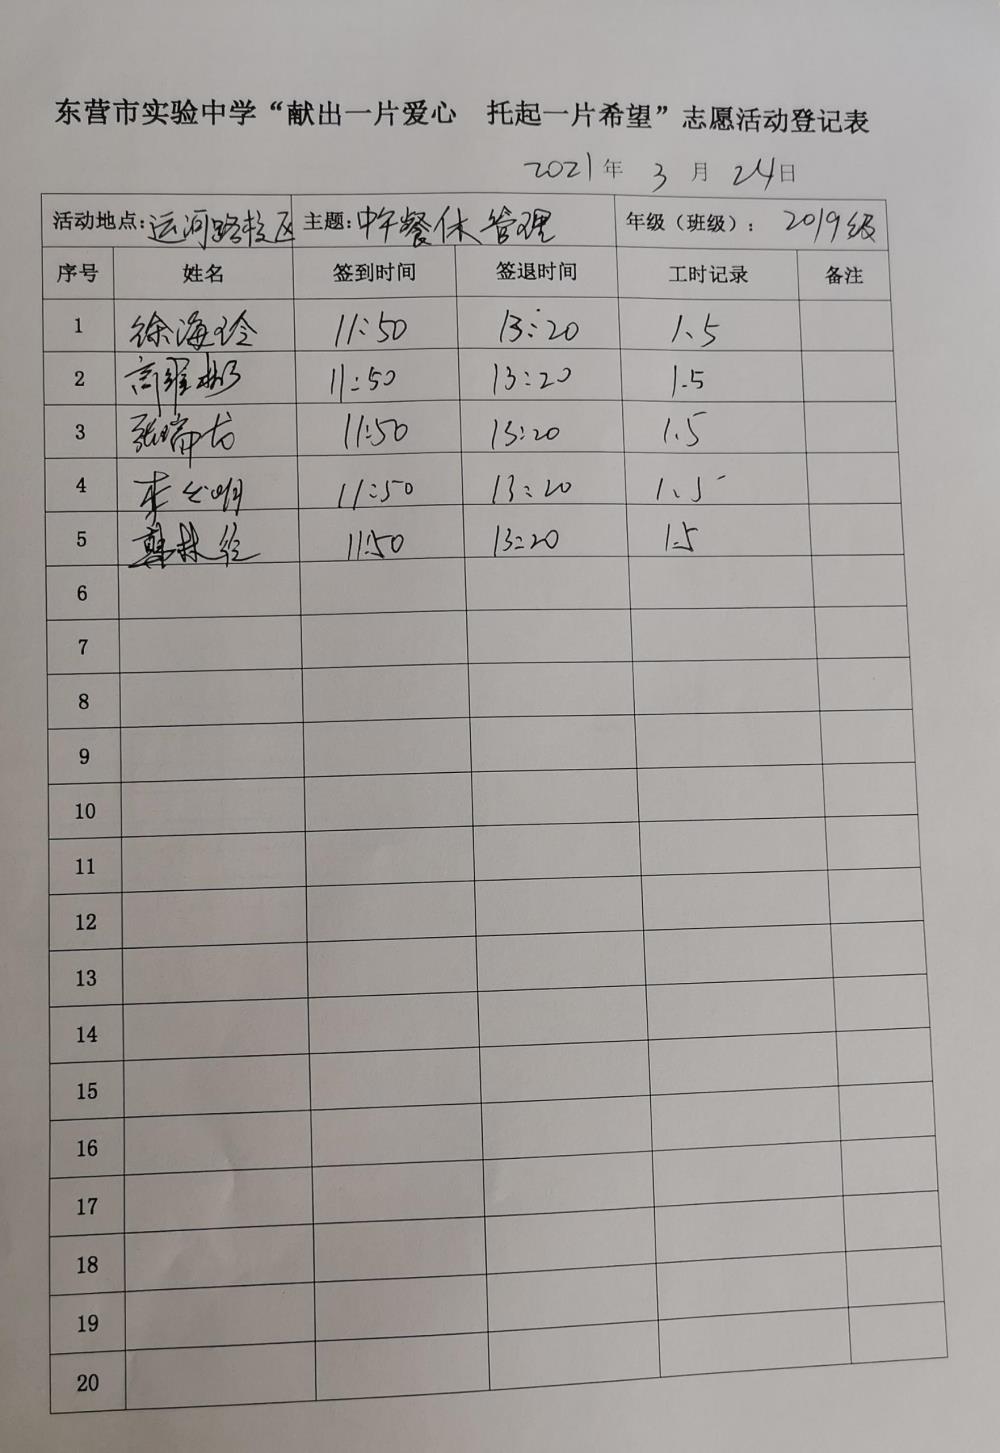 东营市实验中学“献出一片爱心 托起一片希望”志愿活动登记表
2021年 3 月 24日
活动地点:运河路校区 主题:中午餐休管理 年级（班级）: 2019级
序号 姓名 签到时间 签退时间 工时记录 备注
1 徐海玲 11:50 13:20 1.5
2 11:50 13:20 1.5
3 11:50 13:20 1.5
4 11:50 13:20 1.5
5 11:50 13:20 1.5
6
7
8
9
10
11
12
13
14
15
16
17
18
19
20